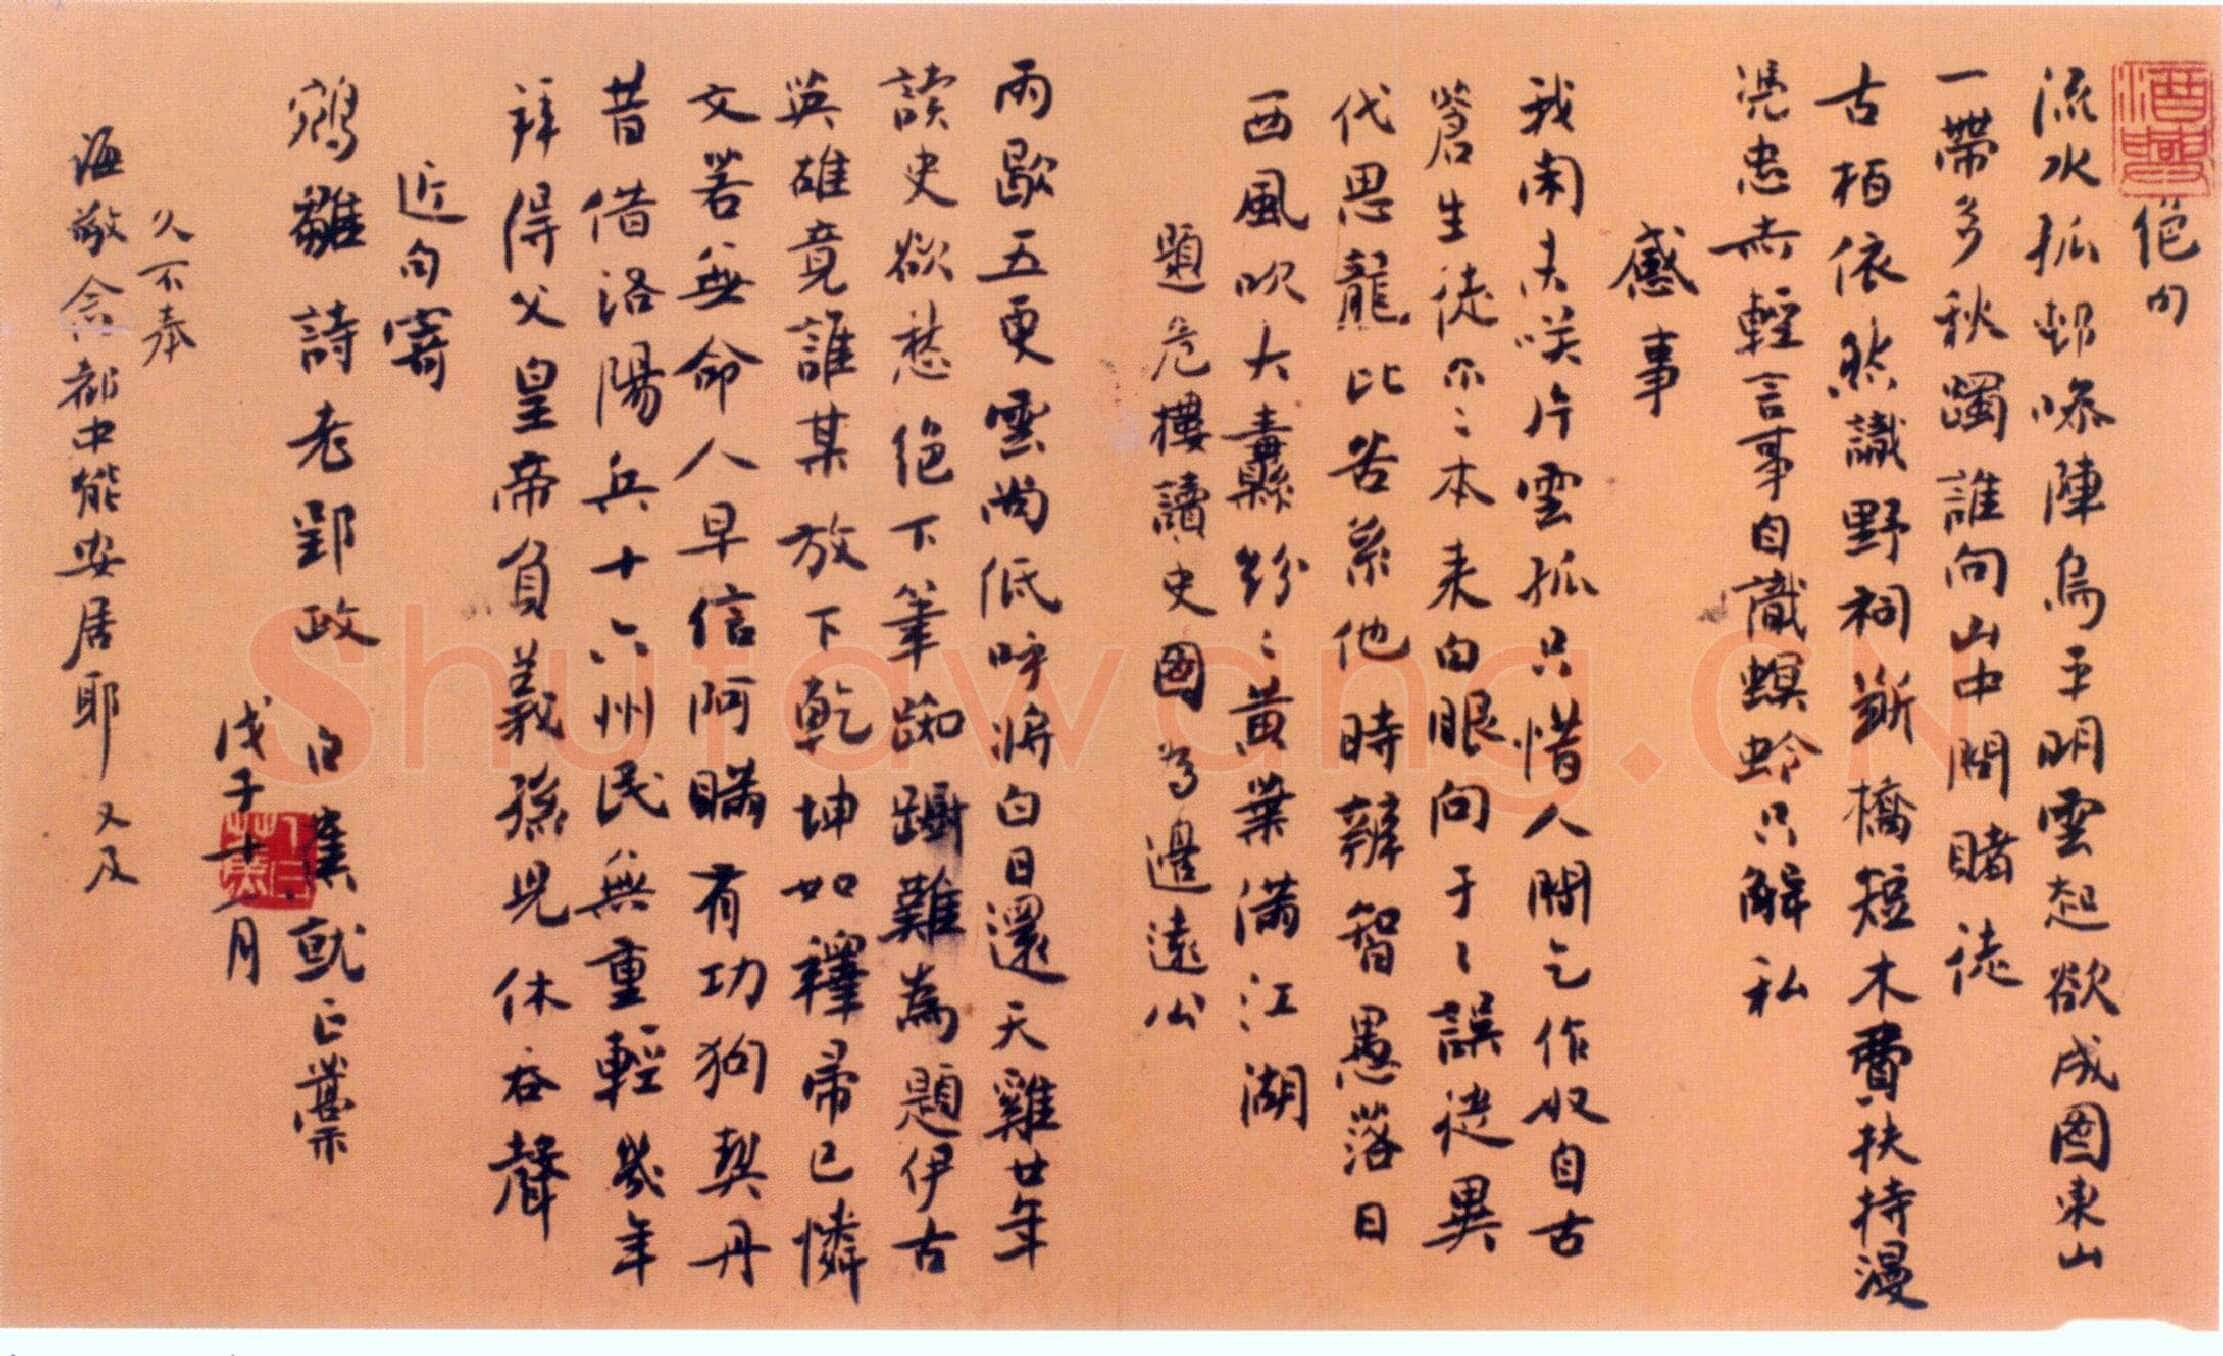 絕句
流水孤邨噪陣烏平明雲起欲成圖東山
一帶多秋躅誰向山中問賭徒
古柏依然識野祠斷橋短木費扶持漫
凭忠赤輕言事自識螟蛉只解私
感事
我聞夫咲片雲孤只惜人間乞作奴自古
蒼生徒爾〻本來白眼向于〻誤徒異
代思龍比苦系他時辨智愚落日
西風吹大纛紛〻黃葉滿江湖
題危樓讀史圖為邊遠公
雨歇五更雲尚低呼將白日還天雞廿年
讀史欲愁絕下筆踟躕難為題伊古
英雄竟誰某放下乾坤如釋帚已憐
文若無命人早信阿瞞有功狗契丹
昔借洛陽兵十六州民無重輕幾年
拜得父皇帝負義孫兒休吞聲
近句寄
鵷雛詩老郢政
白蕉就正草
戊子十一月
久不奉
海敬念都中能安居耶 又及
Shufawang.CN